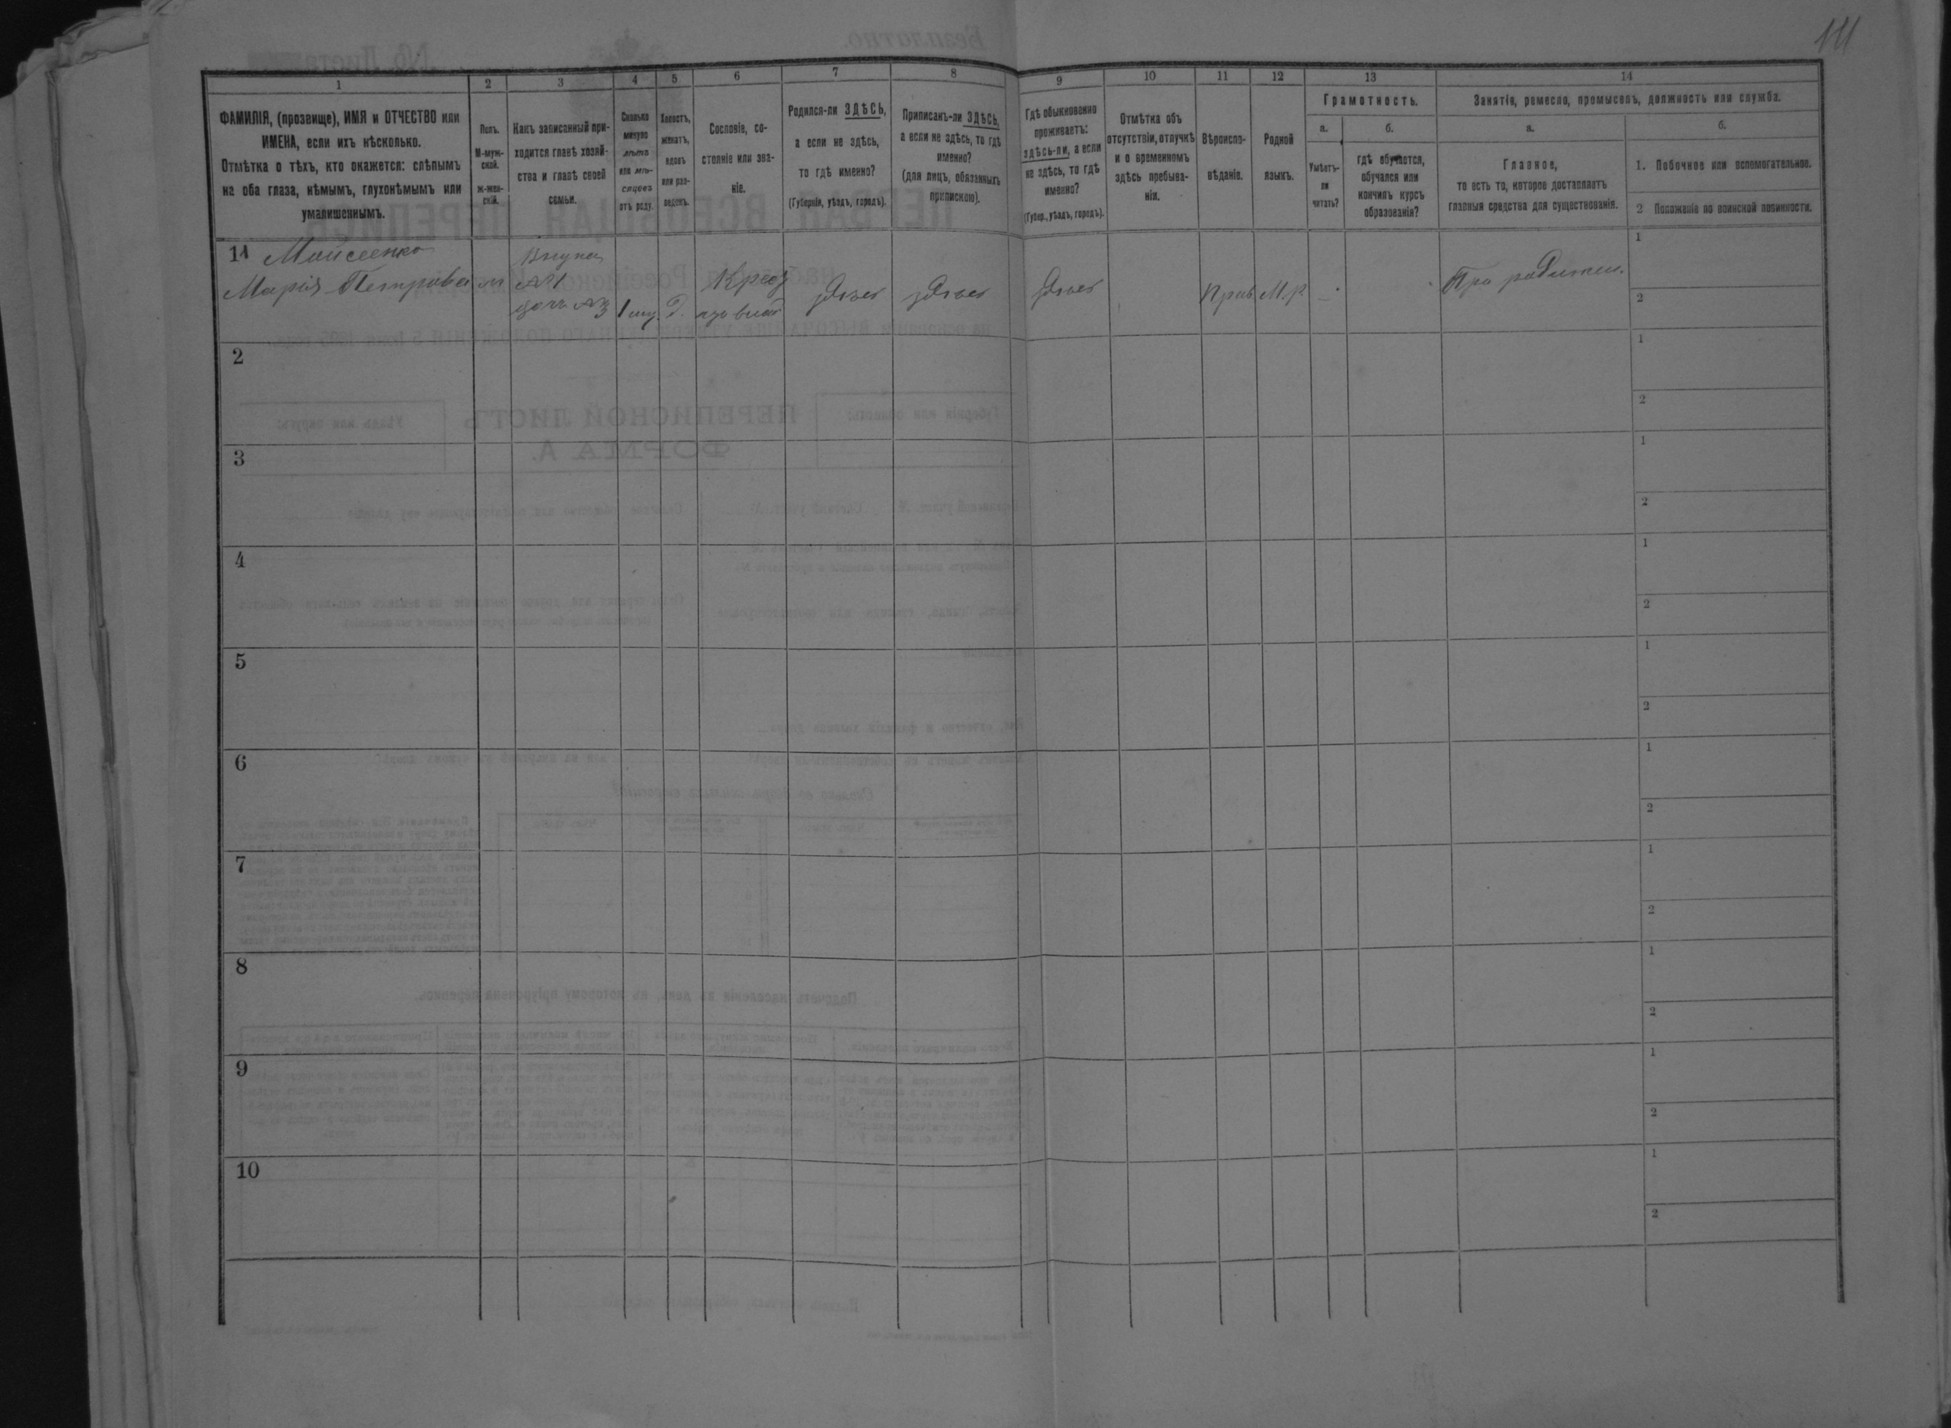 1 2 3 4 5 6 7 8 9 10 11 12 13 14
ФАМИЛІЯ, (прозвище), ИМЯ и ОТЧЕСТВО или
ИМЕНА, если ихъ нѣсколько.
Отмѣтка о тѣхъ, кто окажется: слѣпымъ
на оба глаза, нѣмымъ, глухонѣмымъ или
умалишеннымъ.
Полъ.
М-муж-
ской.
ж-жен-
скій.
Какъ записанный при-
ходится главѣ хозяй-
ства и главѣ своей
семьи.
Сколько
минуло
лѣтъ
или мѣ-
сяцевъ
отъ роду.
Холостъ,
женатъ,
вдовъ
или раз-
веденъ.
Сословіе, со-
стояніе или зва-
ніе.
Родился-ли ЗДѢСЬ,
а если не здѣсь,
то гдѣ именно?
(Губернія, уѣздъ, городъ).
Приписанъ-ли ЗДѢСЬ,
а если не здѣсь, то гдѣ
именно?
(для лицъ, обязанныхъ
припискою).
Гдѣ обыкновенно
проживаетъ:
здѣсь-ли, а если
не здѣсь, то гдѣ
именно?
(Губер., уѣздъ, городъ).
Отмѣтка объ
отсутствіи, отлучкѣ
и о временномъ
здѣсь пребыва-
ніи.
Вѣроиспо-
вѣданіе.
Родной
языкъ.
Грамотность.
а.
Умѣетъ-
ли
читать?
б.
гдѣ обучается,
обучался или
кончилъ курсъ
образованія?
Занятіе, ремесло, промыселъ, должность или служба.
а.
Главное,
то есть то, которое доставляетъ
главныя средства для существованія.
б.
1. Побочное или вспомогательное.
2 Положеніе по воинской повинности.
11 Моисеенко
Марія Петрова
Внука
№1
дочь №3
Д.
здѣсь здѣсь здѣсь
Прав М.р -
При родител.
1
2
2
1
2
3
1
2
4
1
2
5
1
2
6
1
2
7
1
2
8
1
2
9
1
2
10
1
2